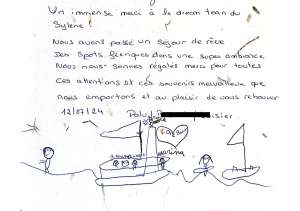 Un immense merci à la dream team du
Sylene !
Nous avons passé un séjour de rêve
Des Spots féeriques dans une super ambiance
Nous nous sommes régalés merci pour toutes
Ces attentions et ces souvenirs merveilleux que
nous emportons et au plaisir de vous retrouver
12/07/24
isier.